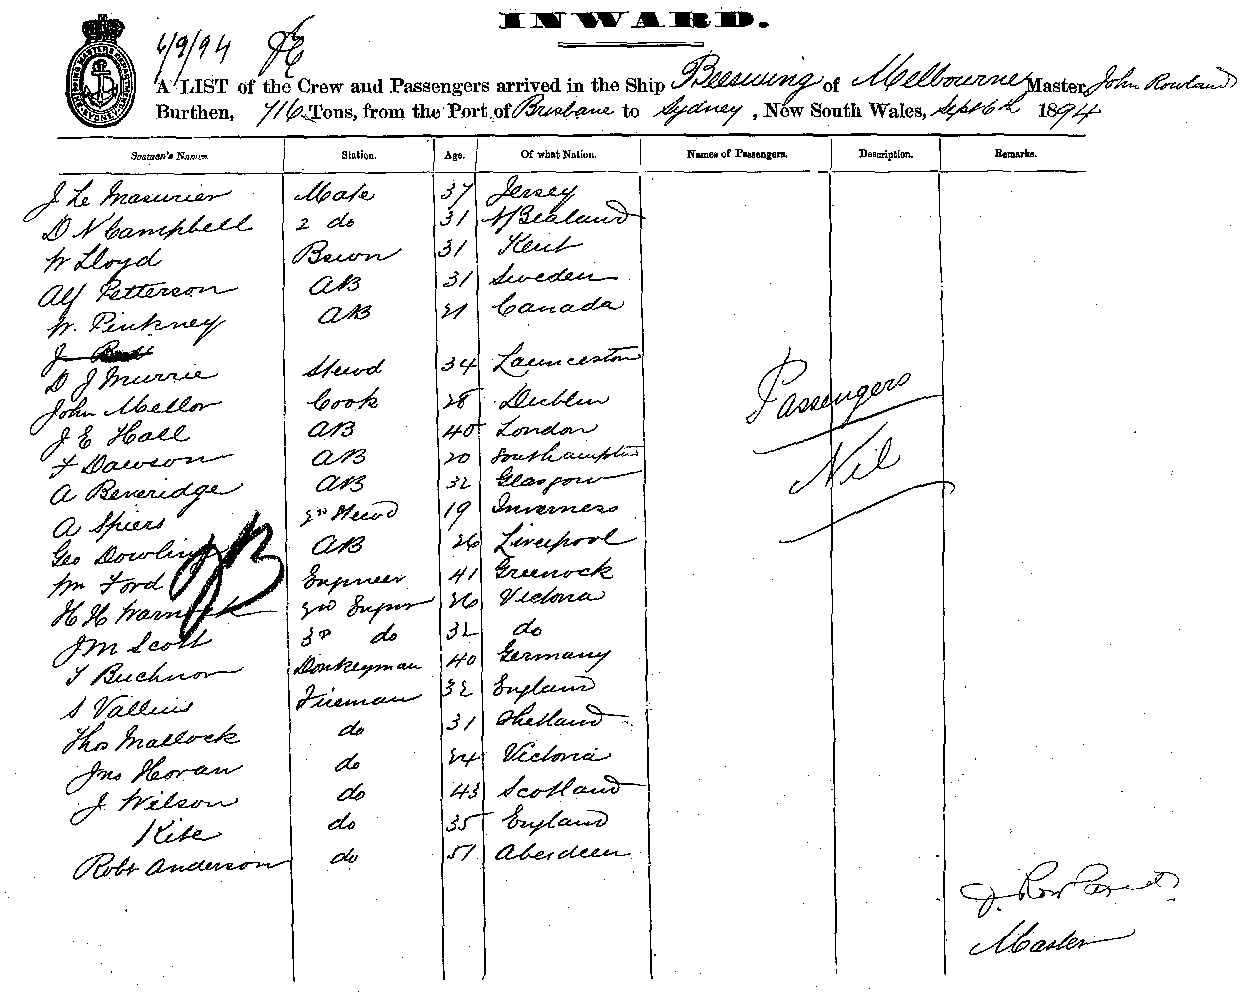 INWARD.
6/9/94
A LIST of the Crew and Passengers arrived in the Ship Beeswing of Melbourne Master, John Rowland
Burthen, 716 Tons, from the Port of Brisbane to Sydney, New South Wales, Sept 6th 1894
Seamen's Names. Station. Age. Of what Nation. Names of Passengers. Description. Remarks.
J Le Masurier Mate 37 Jersey
D N Campbell 2 do 31 N Zealand
W Lloyd Bswn 31 Kent
Alf Petterson AB 31 Sweden
W. Pinkney AB 21 Canada
J
D J Murrie Stewd 34 Launceston
John Mellor Cook 28 Dublin
J E Hall AB 40 London
F Dawson AB 20 Southampton
A Beveridge AB 32 Glasgow
A Spiers 2nd Stewd 19 Inverness
Geo Dowling AB 26 Liverpool
Wm Ford Engineer 41 Greenock
H H Warnock 2nd Engnr 26 Victoria
J M Scott 3rd do 32 do
T Buchnor Donkeyman 40 Germany
S Vallins Fireman 32 England
Thos Mallock do 31 Shetland
Jno Horan do 24 Victoria
J. Wilson do 43 Scotland
Kite do 35 England
Robt Anderson do 51 Aberdeen
Passengers
Nil
J. Rowland
Master